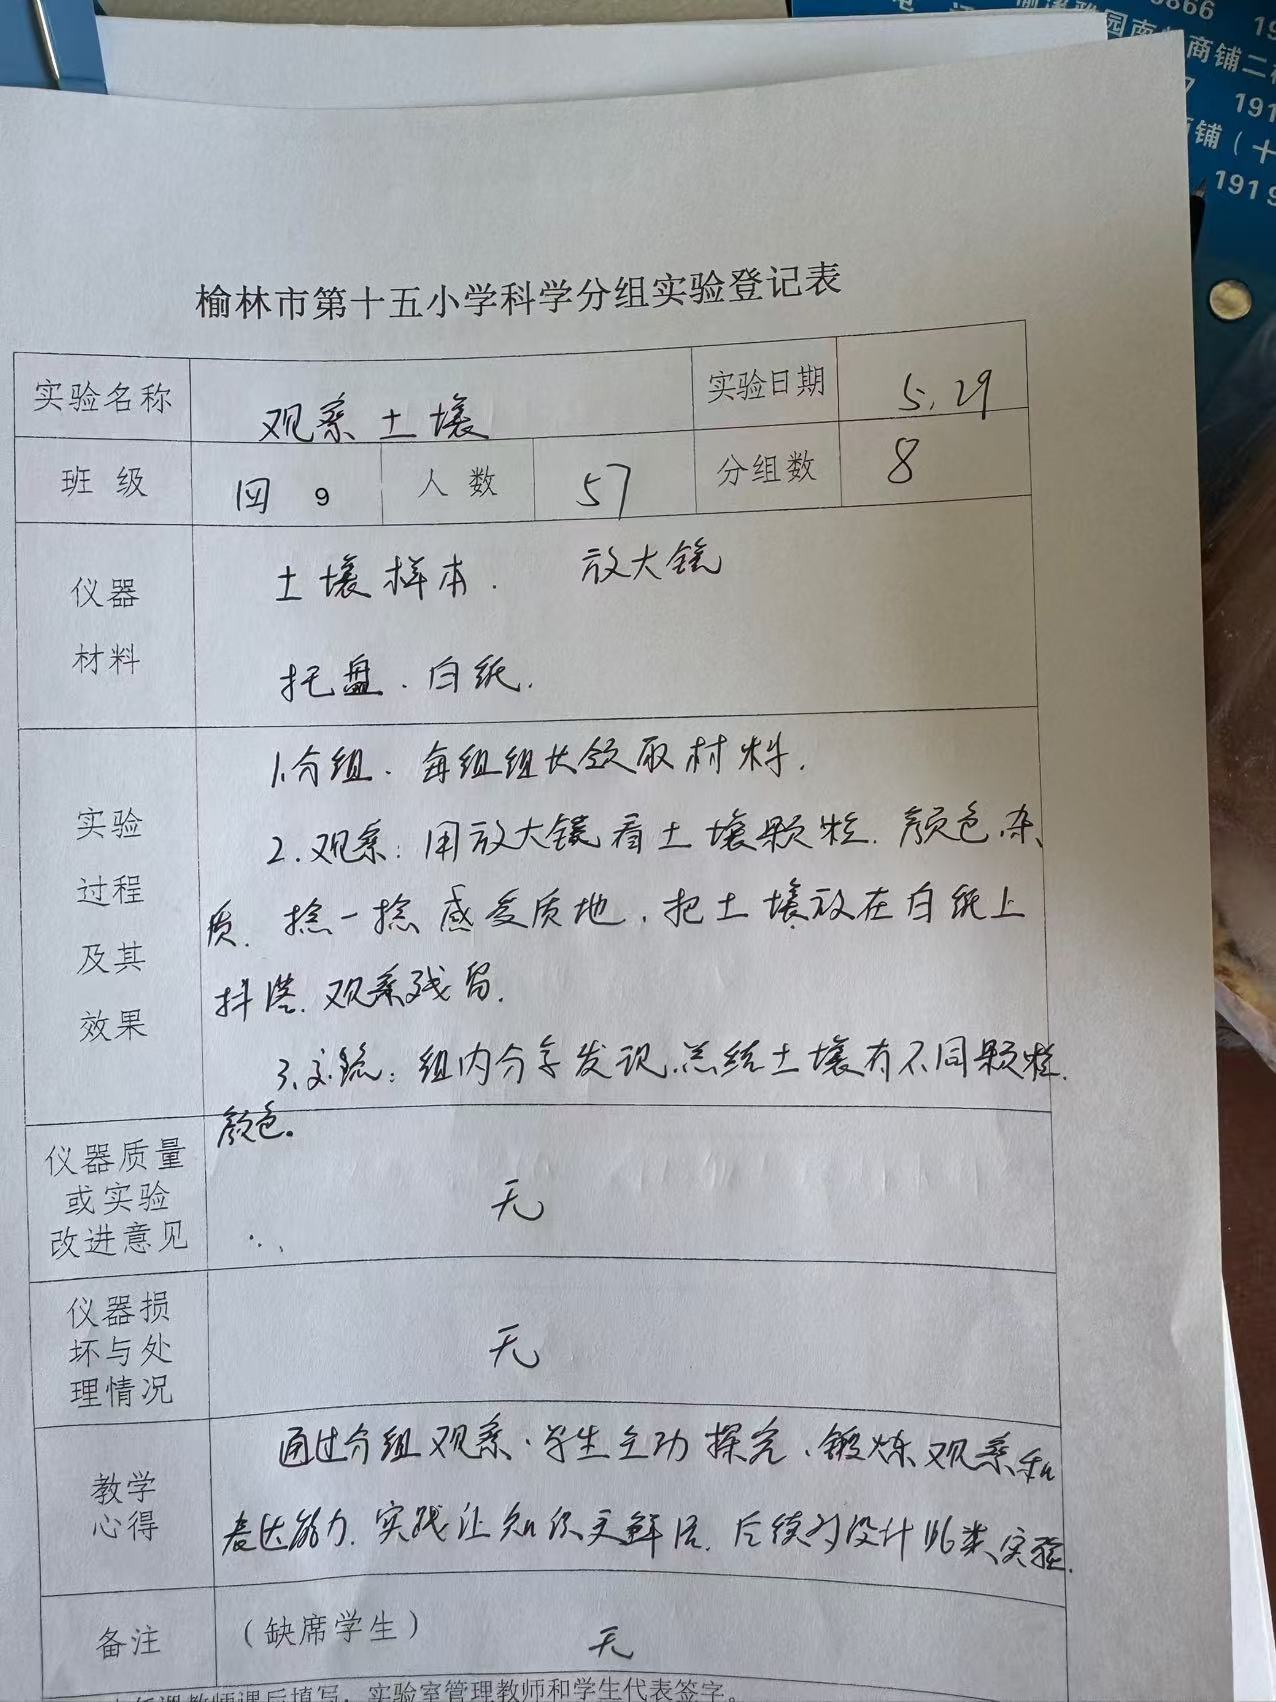 榆林市第十五小学科学分组实验登记表
实验名称 观察土壤 实验日期 5.29
班级 四 9 人数 57 分组数 8
仪器
材料
土壤样本. 放大镜
托盘. 白纸.
实验
过程
及其
效果
1.分组. 每组组长领取材料.
2.观察: 用放大镜看土壤颗粒. 颜色.杂
质. 捻一捻感受质地. 把土壤放在白纸上
抖落. 观察残留.
3.交流: 组内分享发现.总结土壤有不同颗粒.
颜色。
仪器质量
或实验
改进意见
无
仪器损
坏与处
理情况
无
教学
心得
通过分组观察.学生主动探究.锻炼观察和
表达能力.实践让知识更鲜活.后续可设计此类实验.
备注 (缺席学生) 无
课后填写,实验室管理教师和学生代表签字。
5866
园南
商铺二
191
铺(十
1919